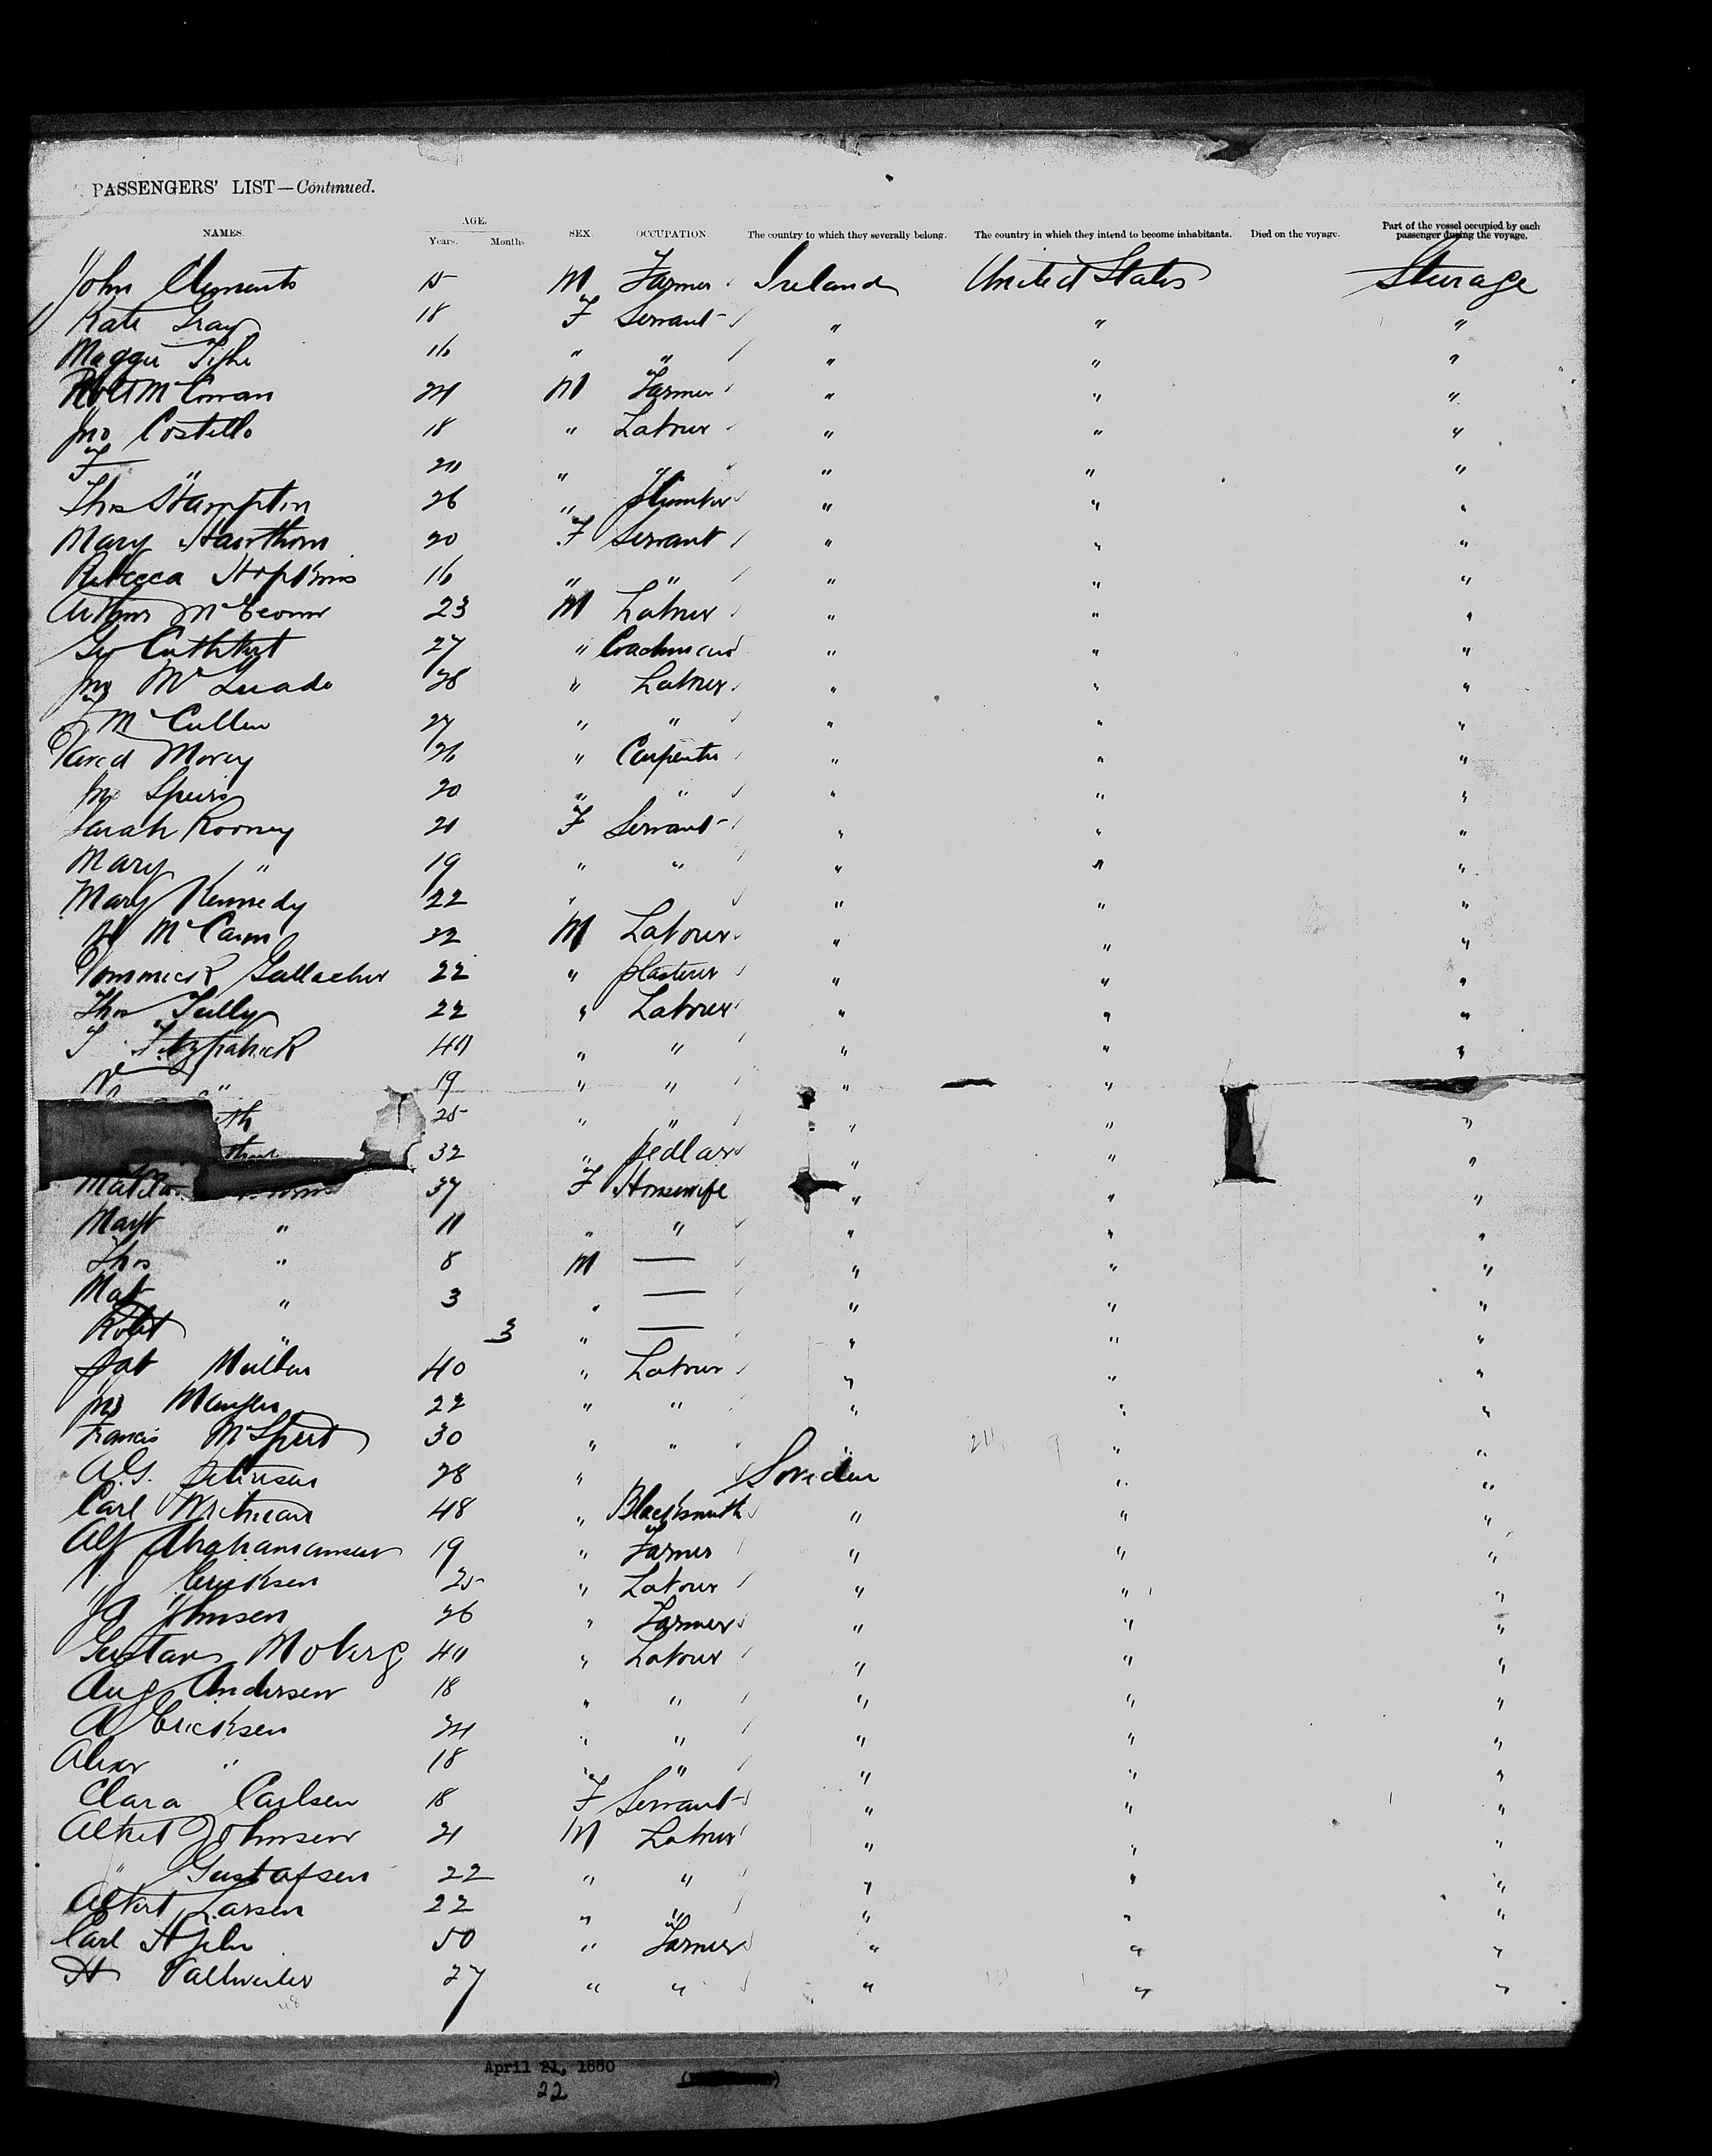 PASSENGERS' LIST—Continued.
NAMES. AGE. Years. Months. SEX. OCCUPATION. The country to which they severally belong. The country in which they intend to become inhabitants. Died on the voyage. Part of the vessel occupied by each passenger during the voyage.
John Clements 15 M Farmer Ireland United States Steerage
Kate Gray 18 F Servant " " "
Maggie Tighe 16 " " " " "
Robt McCowan 24 M Farmer " " "
Jno Costello 18 " Labourer " " "
F " 20 " " " " "
Thos Hampton 26 " plumber " " "
Mary Hawthorn 20 F Servant " " "
Rebecca Hopkins 16 " " " " "
Arthur 23 M Labourer " " "
Geo Cuthbert 27 " Coachman " " "
Jno Mc 28 " Labourer " " "
J McCullen 27 " " " " "
David Morey 26 " Carpenter " " "
Jno Speirs 20 " " " " "
Sarah Rooney 21 F Servant " " "
Mary " 19 " " " " "
Mary Kennedy 22 " " " "
McCann 32 M Labourer " " "
Dommick Gallacher 22 " plasterer " " "
Thos Tully 22 " Labourer " " "
J Fitzpatrick 40 " " " " "
" 19 " " " " "
th 25 " " " " "
32 " pedlar " " "
Matilda 37 F Housewife " " "
Margt " 11 " " " " "
Thos " 8 M — " " "
Mat " 3 " — " " "
Robt " 3 " — " " "
Pat 40 " Labourer " " "
Jno 22 " " " " "
Francis 30 " " " "
A.G. Petersen 28 " Sweden " "
Carl 48 " Blacksmith " " "
Alf Abrahamansen 19 " Farmer " " "
Ericksen 25 " Labourer " " "
J A Johnsen 26 " Farmer " " "
Gustav Moberg 40 " Labourer " " "
Aug Andersen 18 " " " " "
A Ericksen 24 " " " " "
Alexr " 18 " " " " "
Clara Carlsen 18 F Servant " " "
Albert Johnsen 21 M Labourer " " "
" Gustafsen 22 " " " " "
Albert Larsen 22 " " " " "
Carl 50 " Farmer " " "
H 27 " " " " "
April 21, 1880
22